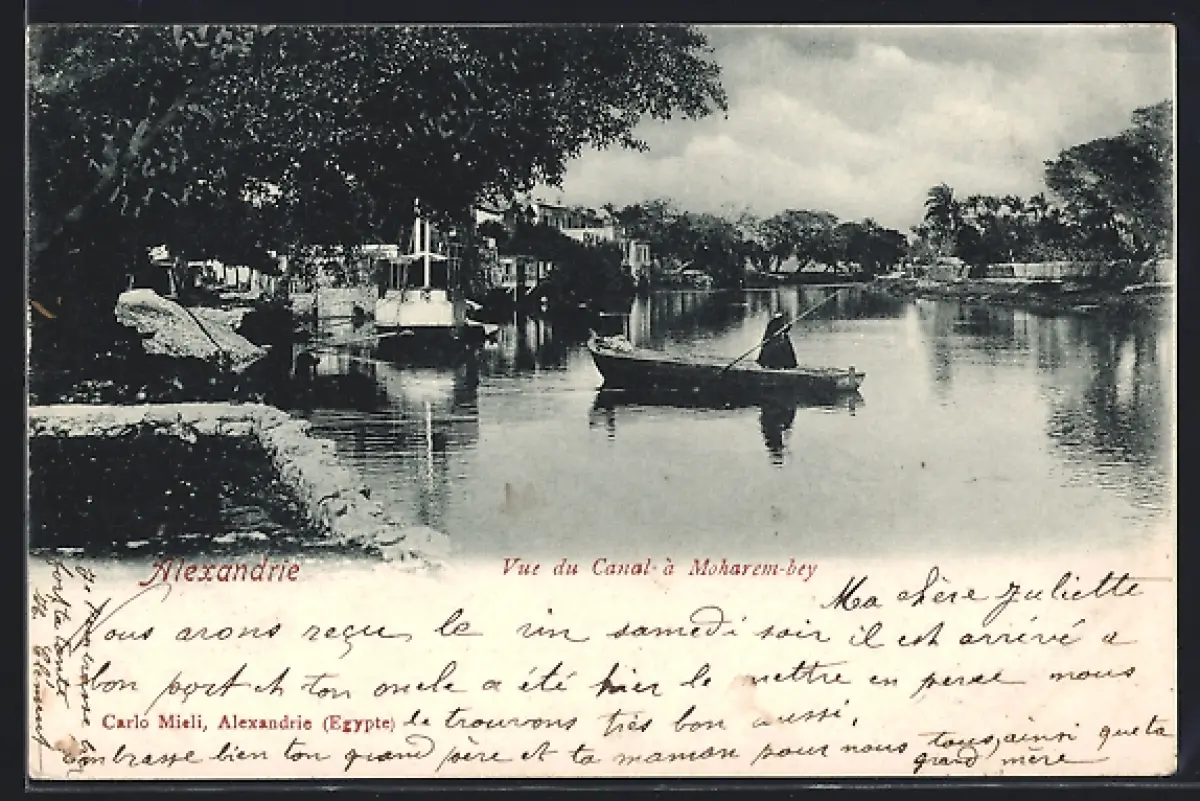 Alexandrie
Vue du Canal à Moharem-bey
Ma chère Juliette
Nous avons reçu le vin samedi soir il est arrivé a
bon port et ton oncle a été hier le mettre en perse nous
Carlo Mieli, Alexandrie (Egypte)
le trouvons très bon aussi,
Embrasse bien ton grand père et ta maman pour nous tous, ainsi que ta
grand mère